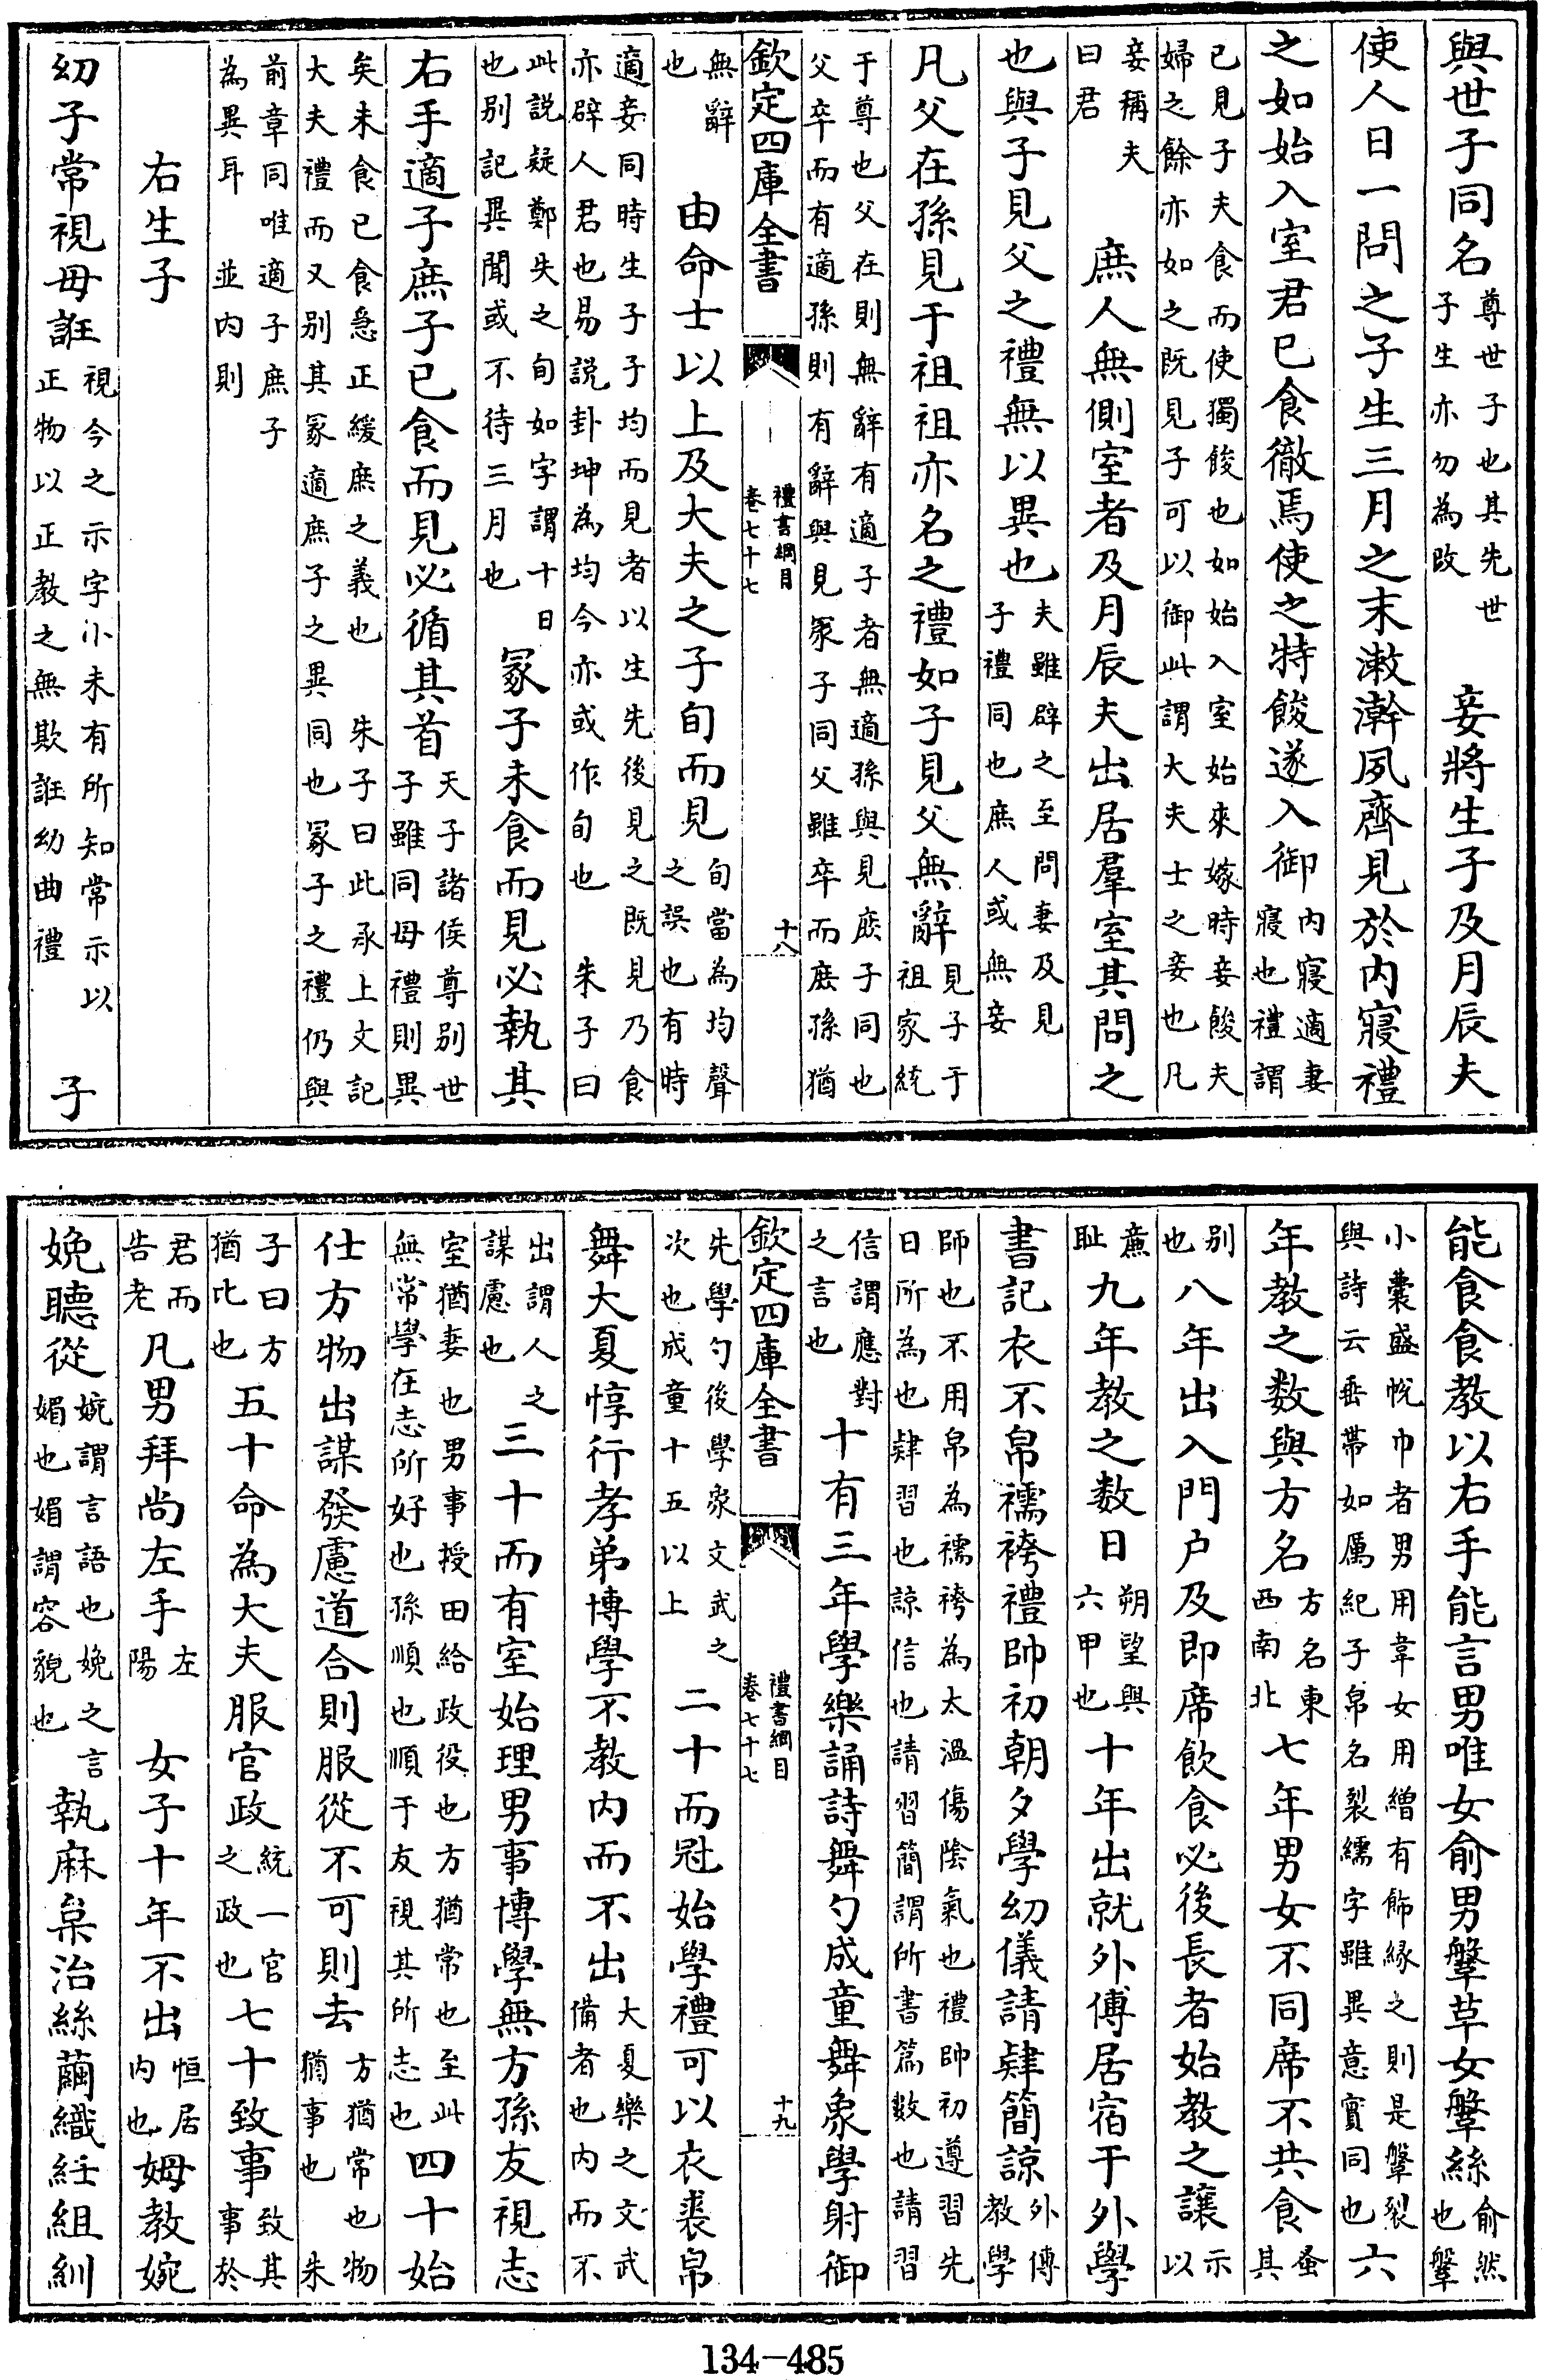 與世子同名尊世子也其先世子生亦勿為改　妾將生子及月辰夫
使人日一問之子生三月之末漱澣夙齊見於内寢禮
之如始入室君已食徹焉使之特餕遂入御内寢適妻寢也禮謂
已見子夫食而使獨餕也如始入室始來嫁時妾餕夫婦之餘亦如之既見子可以御此謂大夫士之妾也凡
妾稱夫曰君　庶人無側室者及月辰夫出居羣室其問之
也與子見父之禮無以異也夫雖辟之至問妻及見子禮同也庶人或無妾
凡父在孫見于祖祖亦名之禮如子見父無辭見子于祖家統
于尊也父在則無辭有適子者無適孫與見庶子同也父卒而有適孫則有辭與見冢子同父雖卒而庶孫猶
欽定四庫全書　禮書綱目卷七十七　十八
無辭也　由命士以上及大夫之子旬而見旬當為均聲之誤也有時
適妾同時生子子均而見者以生先後見之既見乃食亦辟人君也易說卦坤為均今亦或作旬也　朱子曰
此說疑鄭失之旬如字謂十日也别記異聞或不待三月也　冢子未食而見必執其
右手適子庶子已食而見必循其首天子諸侯尊别世子雖同母禮則異
矣未食已食急正緩庶之義也　朱子曰此承上文記大夫禮而又别其冢適庶子之異同也冢子之禮仍與
前章同唯適子庶子為異耳　並内則
右生子
幼子常視毋誑視今之示字小未有所知常示以正物以正教之無欺誑幼曲禮　子
能食食教以右手能言男唯女俞男鞶革女鞶絲俞然也鞶
小囊盛帨巾者男用韋女用繒有飾緣之則是鞶裂與詩云垂帶如厲紀子帛名裂繻字雖異意實同也六
年教之數與方名方名東西南北七年男女不同席不共食蚤其
别也八年出入門户及即席飲食必後長者始教之讓示以
㢘耻九年教之數日朔望與六甲也十年出就外傅居宿于外學
書記衣不帛襦袴禮帥初朝夕學幼儀請肄簡諒外傅教學
師也不用帛為襦袴為太溫傷陰氣也禮帥初遵習先日所為也肄習也諒信也請習簡謂所書篇數也請習
信謂應對之言也　十有三年學樂誦詩舞勺成童舞象學射御
欽定四庫全書　禮書綱目卷七十七　十九
先學勺後學象文武之次也成童十五以上　二十而冠始學禮可以衣裘帛
舞大夏惇行孝弟博學不教内而不出大夏樂之文武備者也内而不
出謂人之謀慮也　三十而有室始理男事博學無方孫友視志
室猶妻也男事授田給政役也方猶常也至此無常學在志所好也孫順也順于友視其所志也四十始
仕方物出謀發慮道合則服從不可則去方猶常也物猶事也　朱
子曰方猶比也五十命為大夫服官政統一官之政也七十致事致其事於
君而告老凡男拜尚左手左陽　女子十年不出恒居内也姆教婉
娩聽從婉謂言語也娩之言媚也媚謂容貌也執麻枲治絲繭織紝組紃
134-485